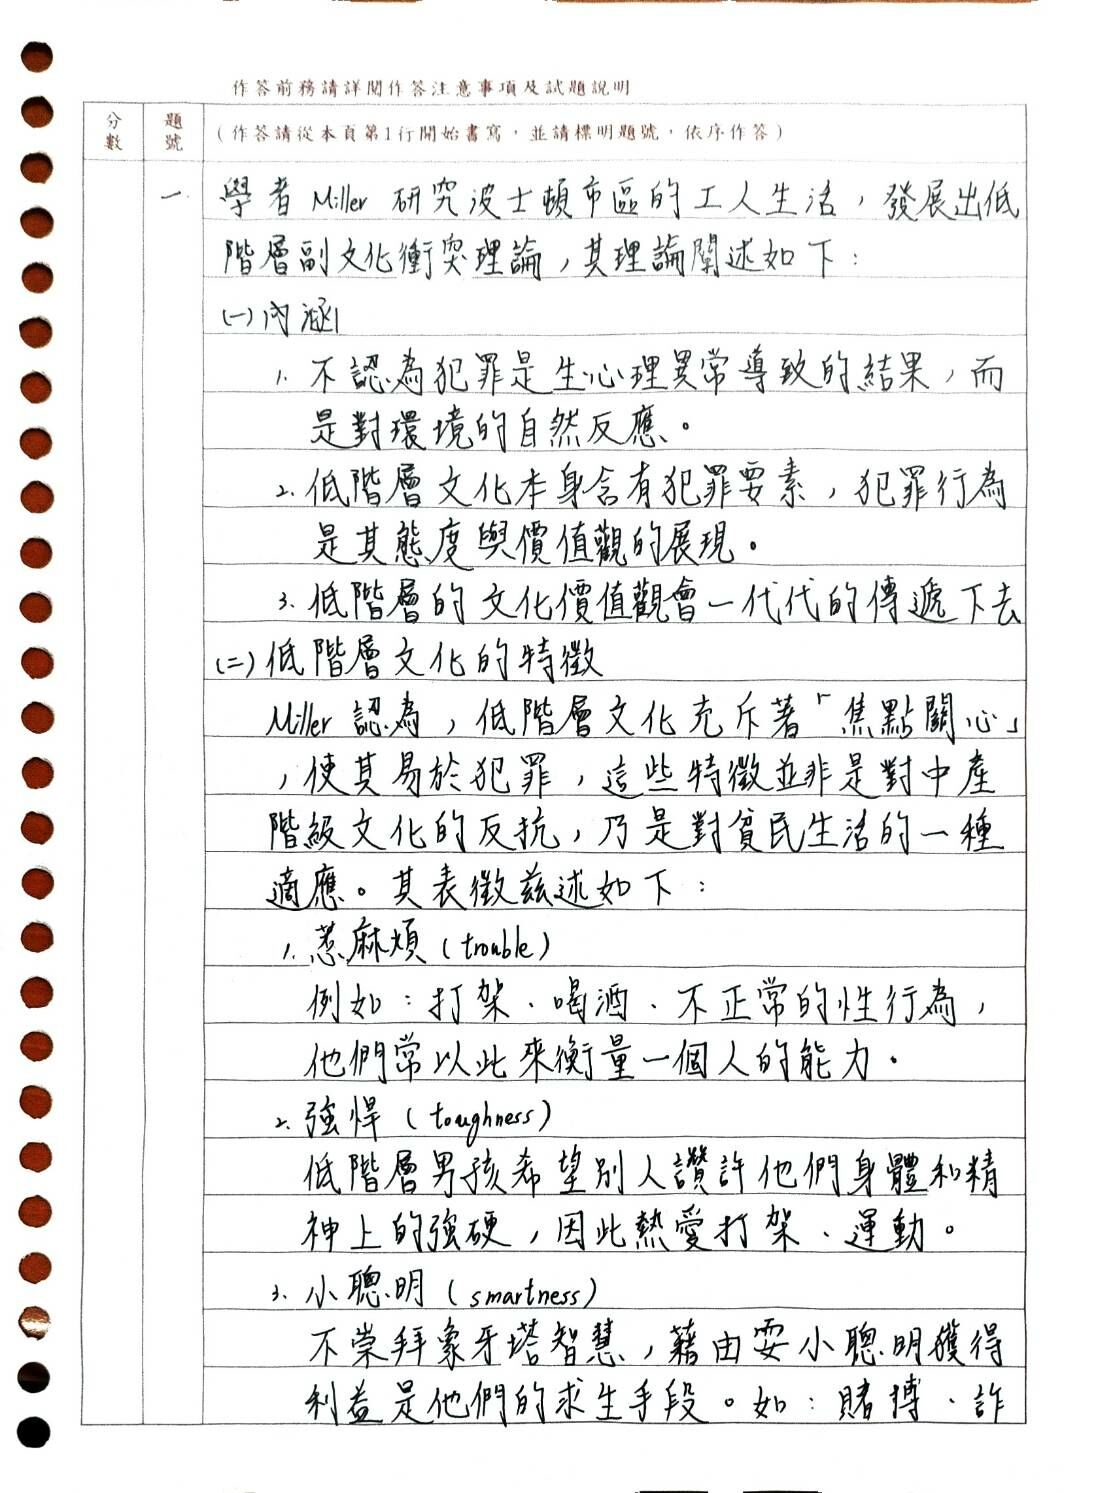 作答前務請詳閱作答注意事項及試題說明
分數
題號
(作答請從本頁第1行開始書寫，並請標明題號，依序作答)
一 學者 Miller 研究波士頓市區的工人生活，發展出低
階層副文化衝突理論，其理論闡述如下：
(一)內涵
1. 不認為犯罪是生心理異常導致的結果，而
是對環境的自然反應。
2. 低階層文化本身含有犯罪要素，犯罪行為
是其態度與價值觀的展現。
3. 低階層的文化價值觀會一代代的傳遞下去
(二)低階層文化的特徵
Miller 認為，低階層文化充斥著「焦點關心」
，使其易於犯罪，這些特徵並非是對中產
階級文化的反抗，乃是對貧民生活的一種
適應。其表徵茲述如下：
1. 惹麻煩 (trouble)
例如：打架、喝酒、不正常的性行為，
他們常以此來衡量一個人的能力。
2. 強悍 (toughness)
低階層男孩希望別人讚許他們身體和精
神上的強硬，因此熱愛打架、運動。
3. 小聰明 (smartness)
不崇拜象牙塔智慧，藉由耍小聰明獲得
利益是他們的求生手段。如：賭博、詐